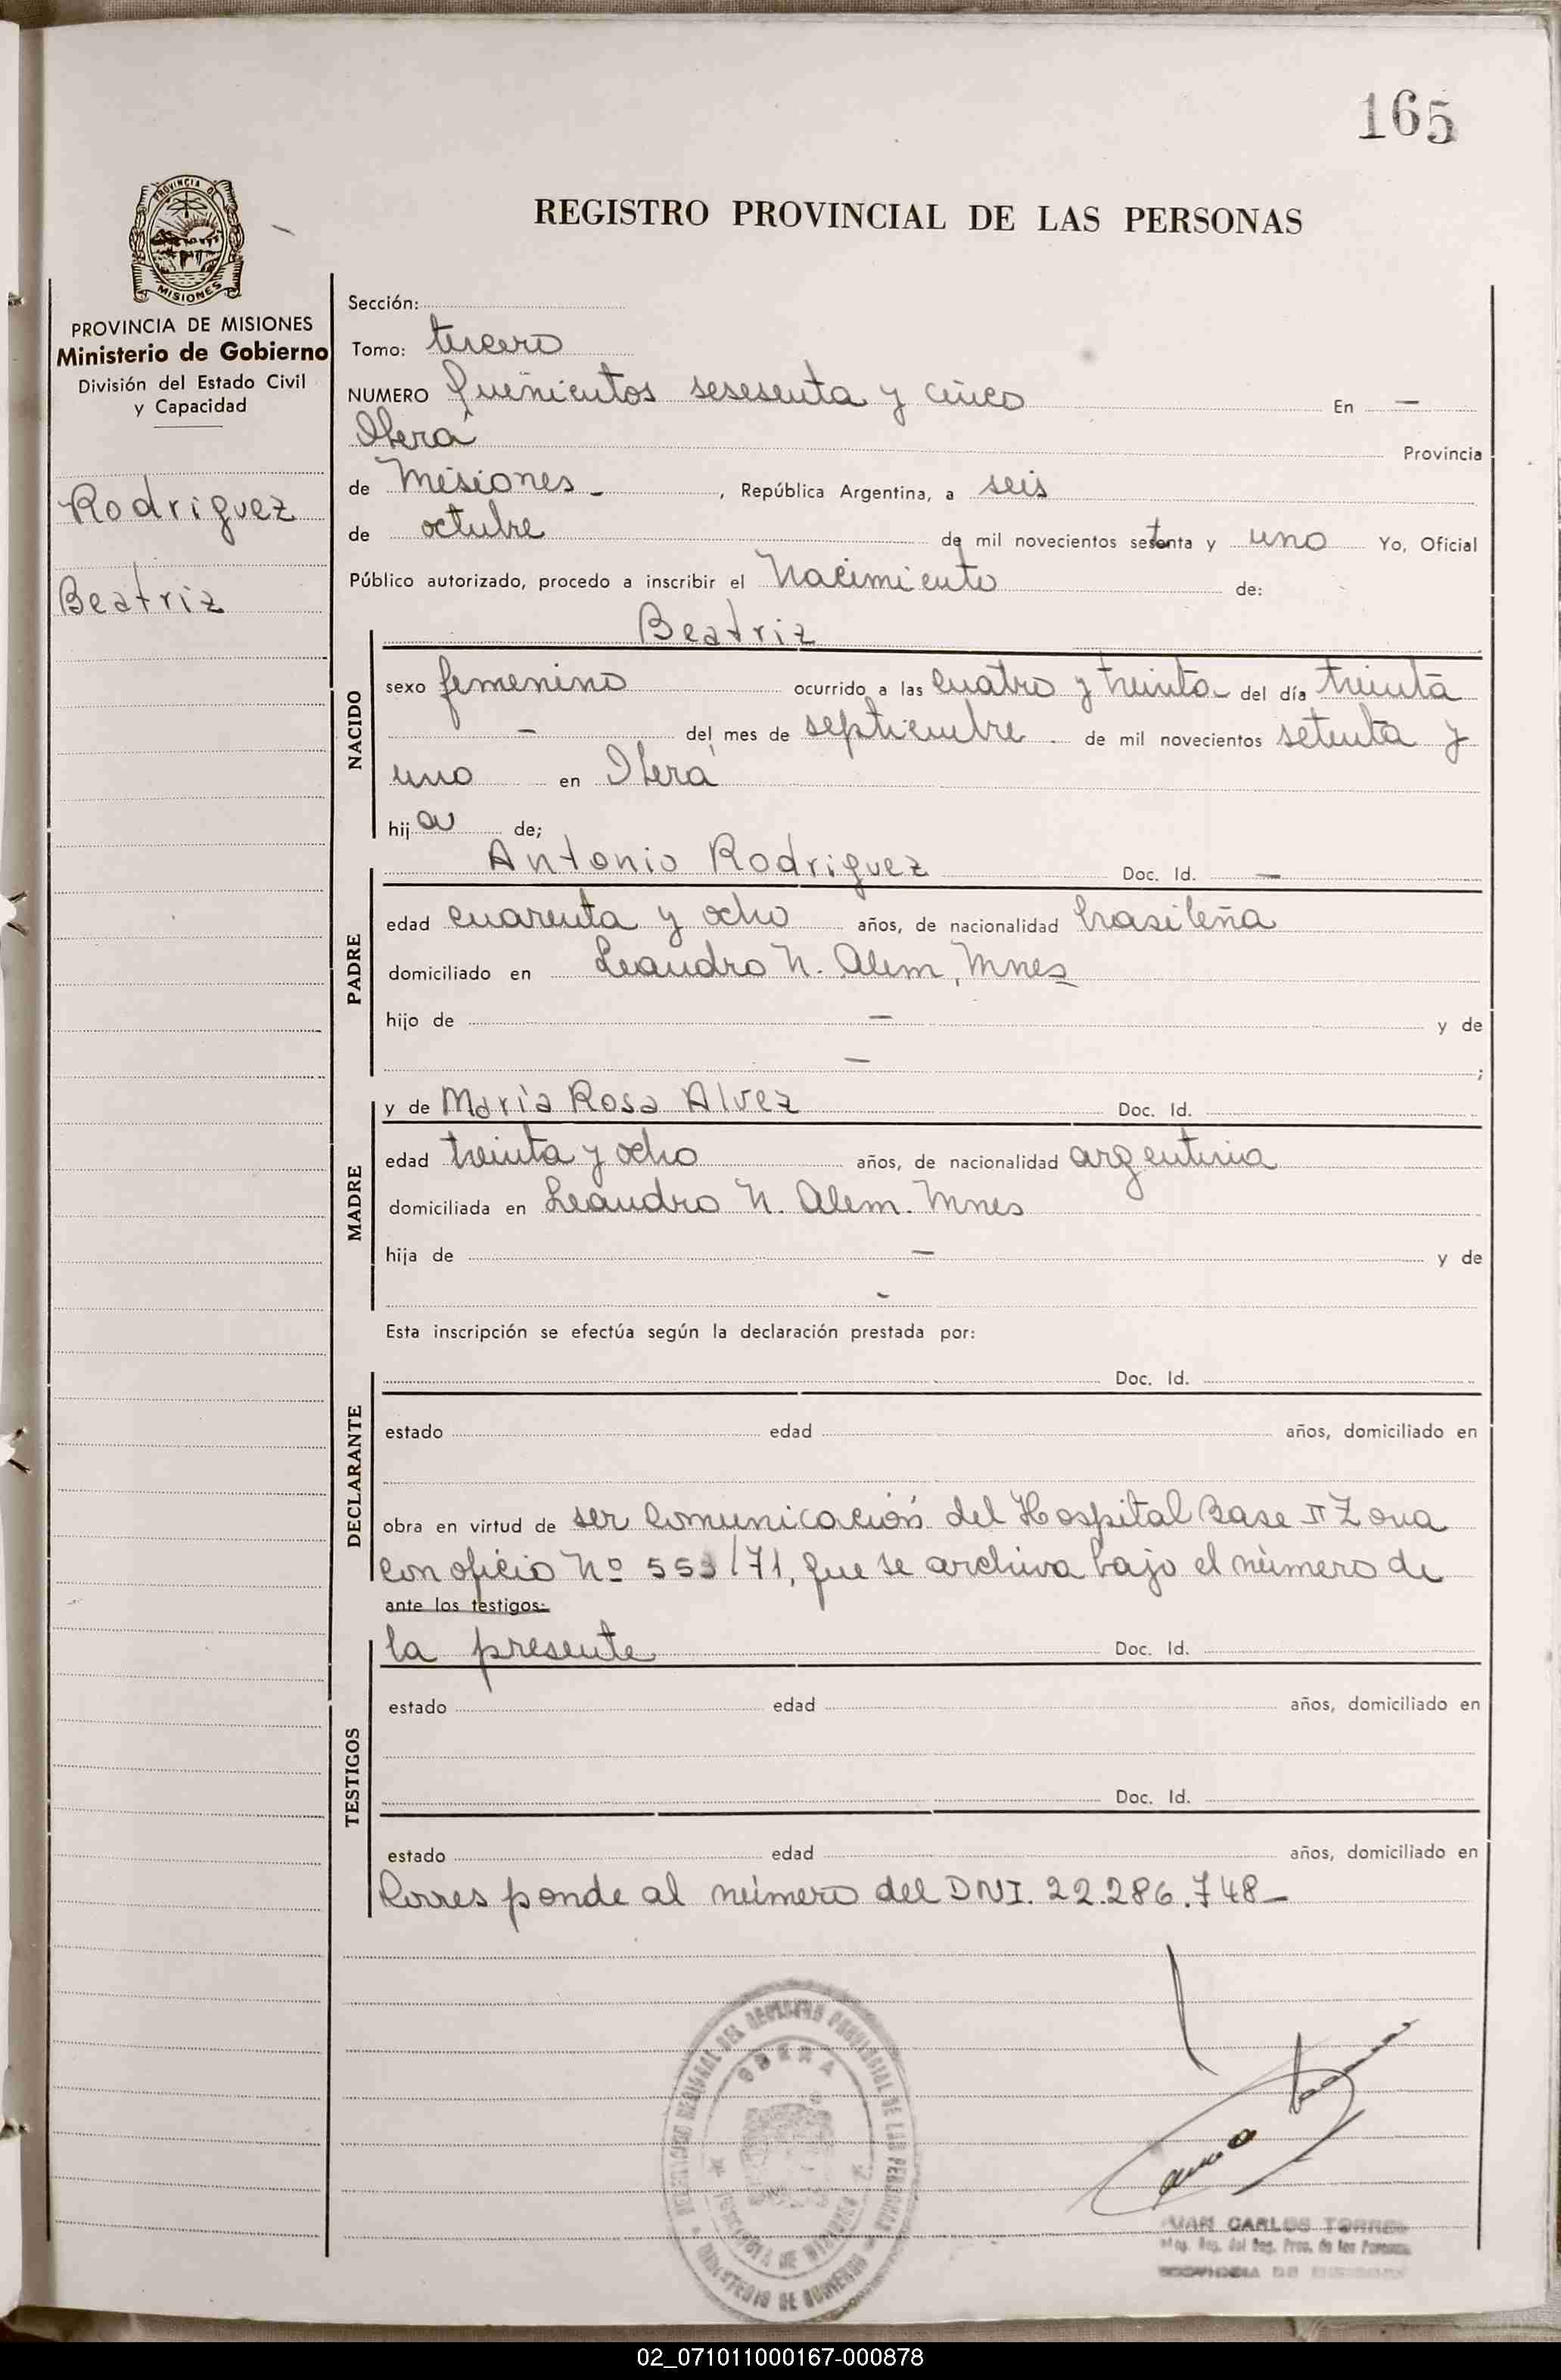 165
PROVINCIA DE
MISIONES
REGISTRO PROVINCIAL DE LAS PERSONAS
PROVINCIA DE MISIONES
Ministerio de Gobierno
División del Estado Civil
y Capacidad
Rodriguez
Beatriz
Sección:
Tomo: tercero
NUMERO Quinientos sesesenta y cinco En —
Oberá Provincia
de Misiones - , República Argentina, a seis
de octubre de mil novecientos setenta y uno Yo, Oficial
Público autorizado, procedo a inscribir el Nacimiento de:
Beatriz
NACIDO
sexo femenino ocurrido a las cuatro y treinta del día treinta
— del mes de septiembre de mil novecientos setenta y
uno en Oberá
hija de;
Antonio Rodriguez Doc. Id. —
PADRE
edad cuarenta y ocho años, de nacionalidad brasileña
domiciliado en Leandro N. Alem, Mnes
hijo de — y de
— ;
y de María Rosa Alvez Doc. Id.
MADRE
edad treinta y ocho años, de nacionalidad argentina
domiciliada en Leandro N. Alem. Mnes
hija de — y de
-
Esta inscripción se efectúa según la declaración prestada por:
Doc. Id.
DECLARANTE
estado edad años, domiciliado en
obra en virtud de ser Comunicación del Hospital Base II Zona
con oficio Nº 553/71, que se archiva bajo el número de
ante los testigos:
la presente Doc. Id.
TESTIGOS
estado edad años, domiciliado en
Doc. Id.
estado edad años, domiciliado en
Corresponde al número del DNI. 22.286.748-
OBERA
MINISTERIO DE GOBIERNO
JUAN CARLOS TORRES
02_071011000167-000878